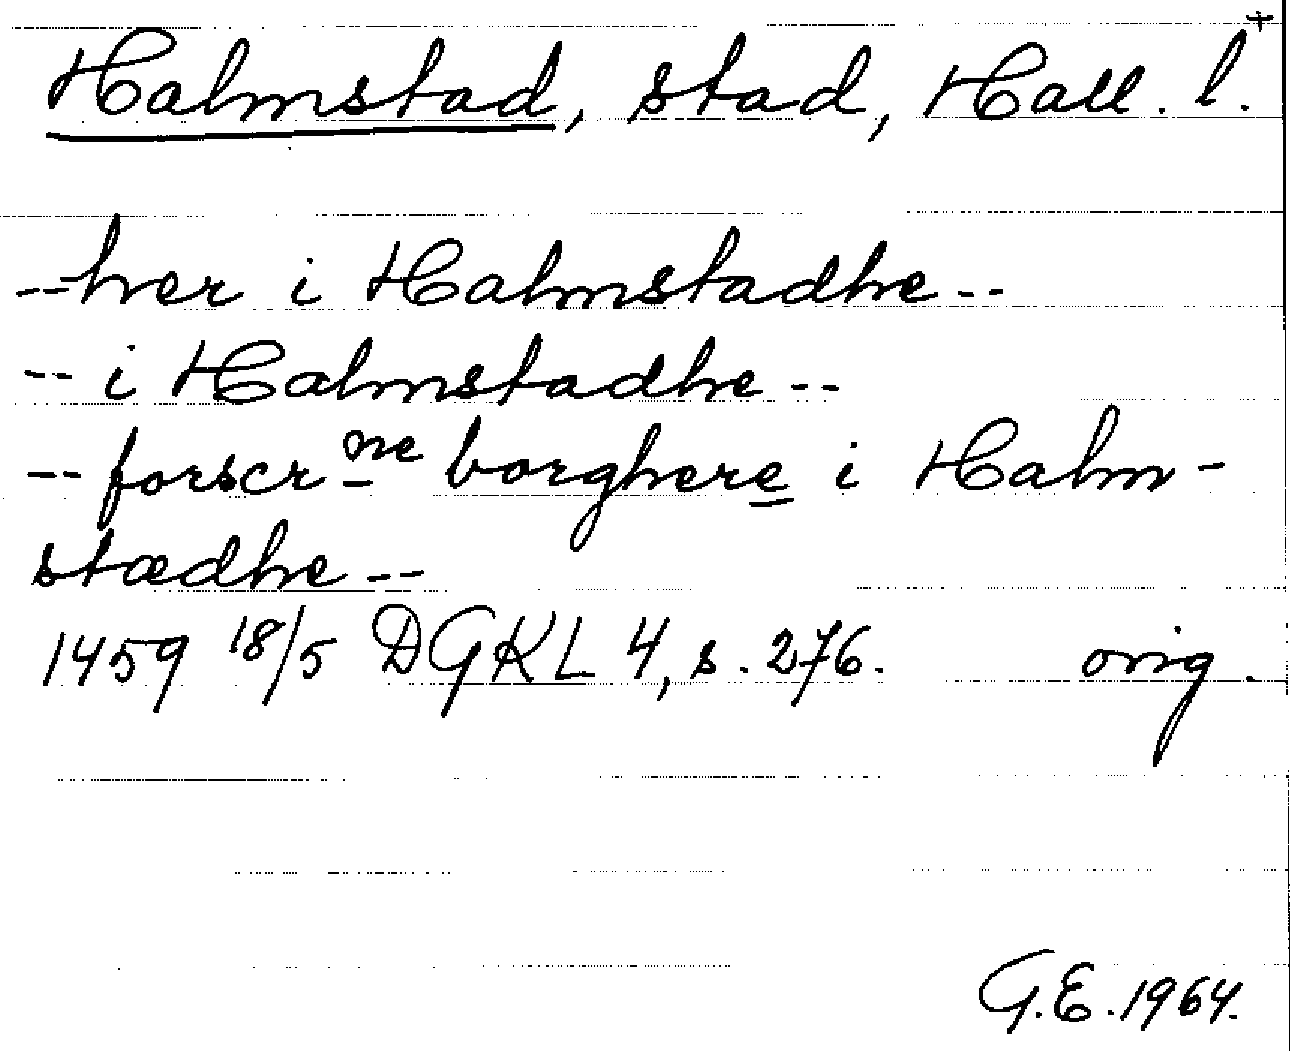 Halmstad, stad, Hall. l.+
--her i Halmstadhe--
-- i Halmstadhe --
-- forscrne borghere i Halm-
stædhe --
1459 18/5 DGKL 4, s. 276. orig.
G.E. 1964.